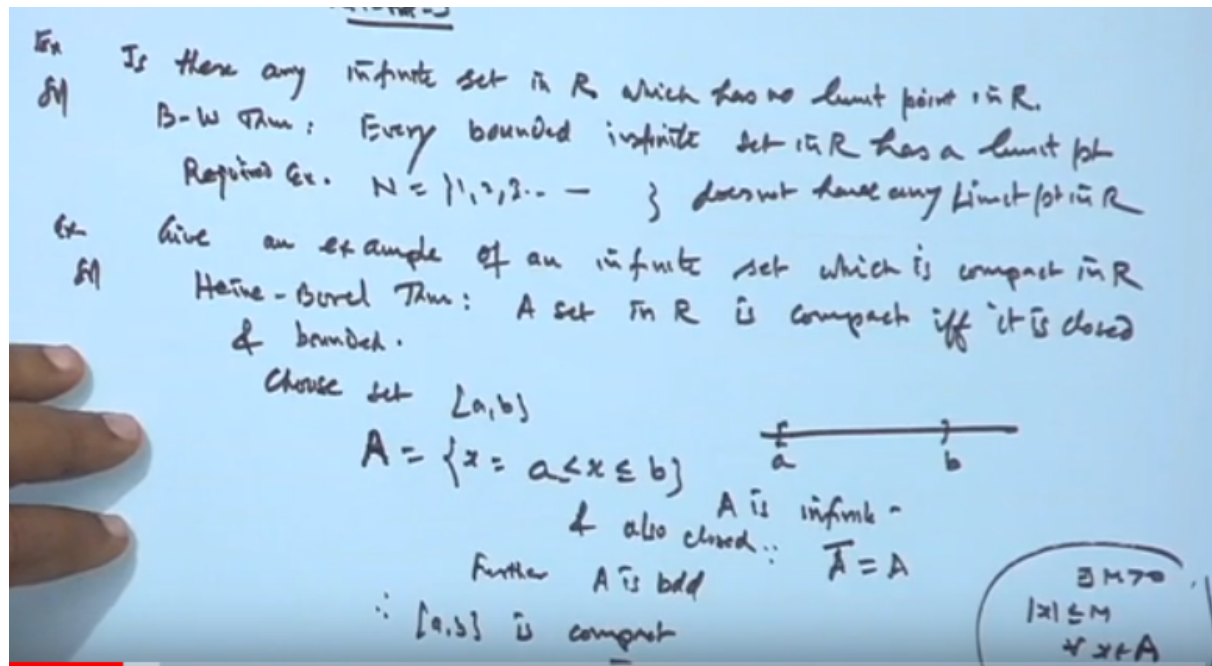 Ex Is there any infinite set in R which has no limit point in R.
Sol B-W Thm: Every bounded infinite set in R has a limit pt
Required Ex. N = {1, 2, 3.. — } does not have any Limit pt in R
Ex Give an example of an infinite set which is compact in R
Sol Heine-Borel Thm: A set in R is compact iff it is closed
& bounded.
Choose set [a,b]
A = {x : a ≤ x ≤ b}
a b
A is infinite -
& also closed ∵ Ā = A
Further A is bdd
∃ M>0
|x| ≤ M
∀ x ∈ A
∴ [a,b] is compact